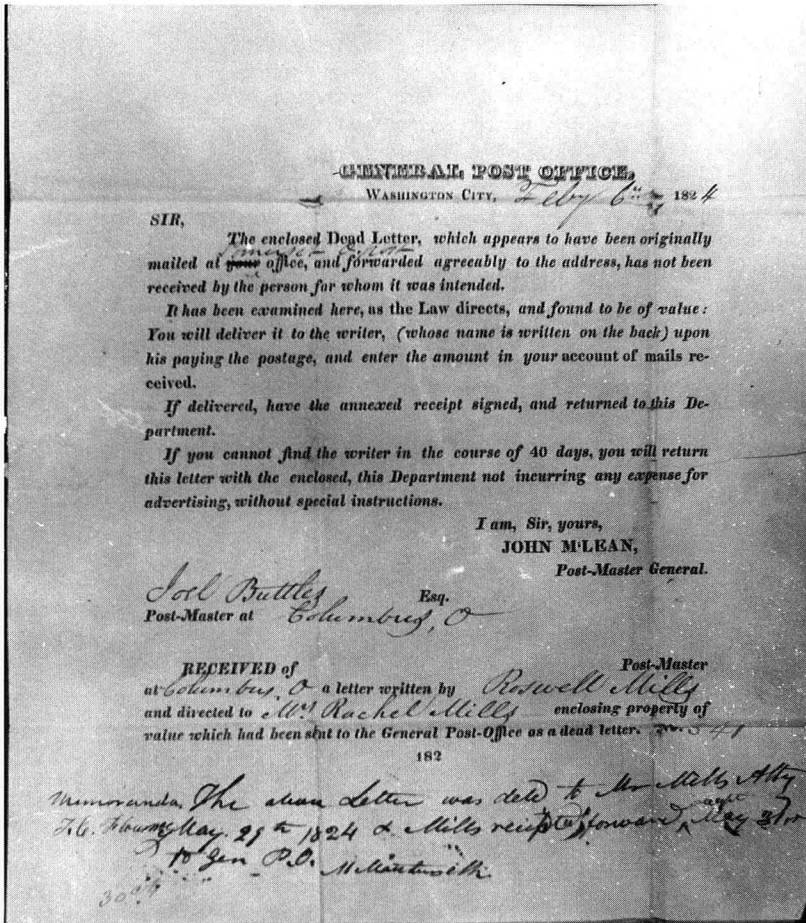 GENERAL POST OFFICE,
WASHINGTON CITY, Feby 6th 1824
SIR,
The enclosed Dead Letter, which appears to have been originally
mailed at your office, and forwarded agreeably to the address, has not been
received by the person for whom it was intended.
It has been examined here, as the Law directs, and found to be of value:
You will deliver it to the writer, (whose name is written on the back) upon
his paying the postage, and enter the amount in your account of mails re-
ceived.
If delivered, have the annexed receipt signed, and returned to this De-
partment.
If you cannot find the writer in the course of 40 days, you will return
this letter with the enclosed, this Department not incurring any expense for
advertising, without special instructions.
I am, Sir, yours,
JOHN M'LEAN,
Post-Master General.
Joel Buttles Esq.
Post-Master at Columbus, O
RECEIVED of Post-Master
at Columbus, O a letter written by Roswell Mills
and directed to Mrs Rachel Mills enclosing property of
value which had been sent to the General Post-Office as a dead letter. 341
182
Memoranda. The above Letter was deld to Mr Mills Atty
May 29th 1824 & Mills receipt forward May 31
to Gen P.O.